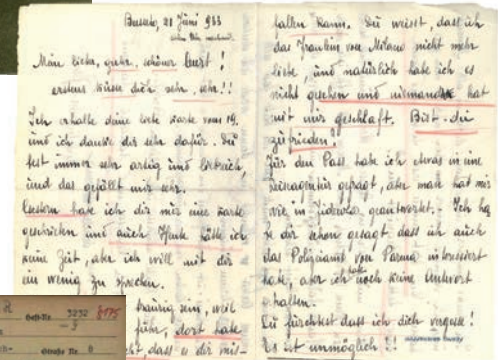 Busseto, 21 Juni 933
Mein lieber, guter, schöner Gert!
erstens küsse dich sehr, sehr!!
Ich erhalte deine liebe Karte vom 19.
und ich danke dir sehr dafür. Du
bist immer sehr artig und
und das gefällt mir sehr.
Gestern habe ich dir nur eine Karte
geschrieben und auch Heute hätte ich
keine Zeit, aber ich will mit dir
ein wenig zu sprechen.
traurig sein, weil
führ, dort habe
ht, dass es dir mis-
fallen kann. Du weisst, dass ich
das Fraulein von Milano nicht mehr
liebe, und natürlich habe ich es
nicht gesehen und niemand hat
mit mir geschlaft. Bist du
zufrieden?
Für den Pass habe ich etwas in eine
Reiseagentur gefragt, aber man hat mir
wie in geantwortet. Ich ha
be dir schon gesagt dass ich auch
das Polizeiamt von Parma interessiert
habe, aber ich habe noch keine Antwort
erhalten.
Du fürchtest dass ich dich vergesse!
Es ist unmöglich!!
R
Gef.-Nr. 5232 8175
Straße Nr. 8